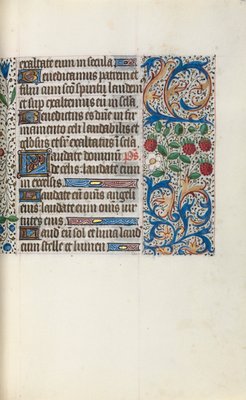 exaltate eum in secula
Benedicamus patrem et
filiū cum scō spiritu laudem
et sup exaltemus eū ī scła
Benedictus es dn̄e in fir
mamento celi laudabilis et
gl'osus et supexaltatus ī scła
Laudate dominū ps
de celis: laudate eum
in excelsis
Laudate eū oēs angeli
eius laudate eum om̄s uir
tutes eius
Laud eū sol et luna laud
eum stelle et lumen